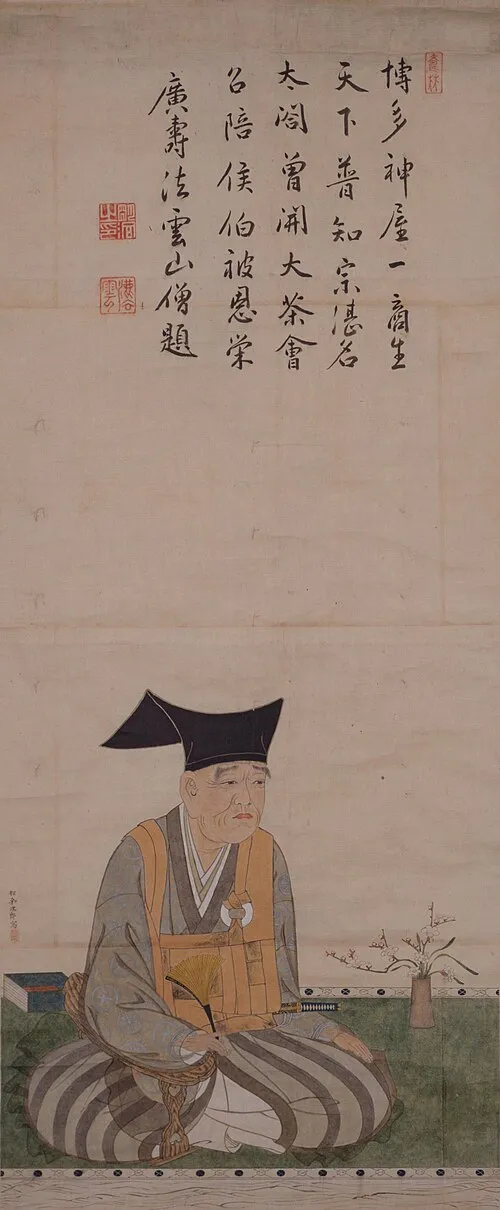 博多神屋一商生
天下普知宗湛名
太閤曽開大茶會
召陪侯伯被恩栄
廣壽法雲山僧題